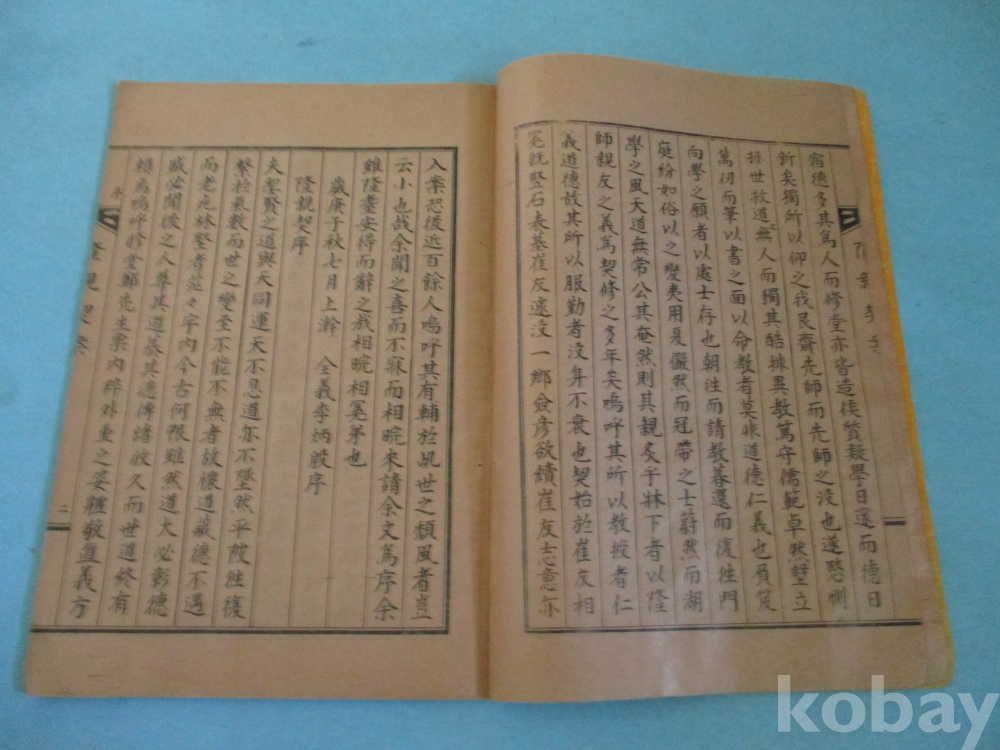 宿德多其爲人而修堂亦嘗造侯質疑學日進而德日
新矣獨所以仰之我艮齋先師而先師之沒也遂慇惻
拯世救道無人而獨其酷排異敎篤守儒範卓然壁立
萬仞而筆以書之面以命敎者莫非道德仁義也負笈
向學之願者以處士存也朝往而請敎暮還而復往門
庭紛如俗以之變夷用夏儼然而冠帶之士蔚然而湖
學之風天道無常公其奄然則其親炙乎牀下者以隆
師親友之義爲契修之多年矣嗚呼其所以敎授者仁
義道德故其所以服勤者沒身不衰也契始於崔友相
冕旣竪石表墓崔友遽沒一鄕僉彦欲續崔友志意亦
入案恐後近百餘人嗚呼其有輔於此世之頹風者豈
云小也哉余聞之喜而不寐而相晥來請余文爲序余
雖隆耋安得而辭之哉相晥相冕弟也
歲庚子秋七月上澣 全義李炳殷序
隆親契序
夫聖賢之道與天同運天不息道亦不墜然平陂往復
繫於氣數而世之變至不能不無者故懷道藏德不遇
而老於林壑者茫々宇內今古何限雖然道大必彰德
盛必聞後之人尊其道慕其德傳諸攸久而世道終有
賴焉嗚呼修堂鄭先生案內粹外重之姿軆敬直義方
序
隆親契案
二